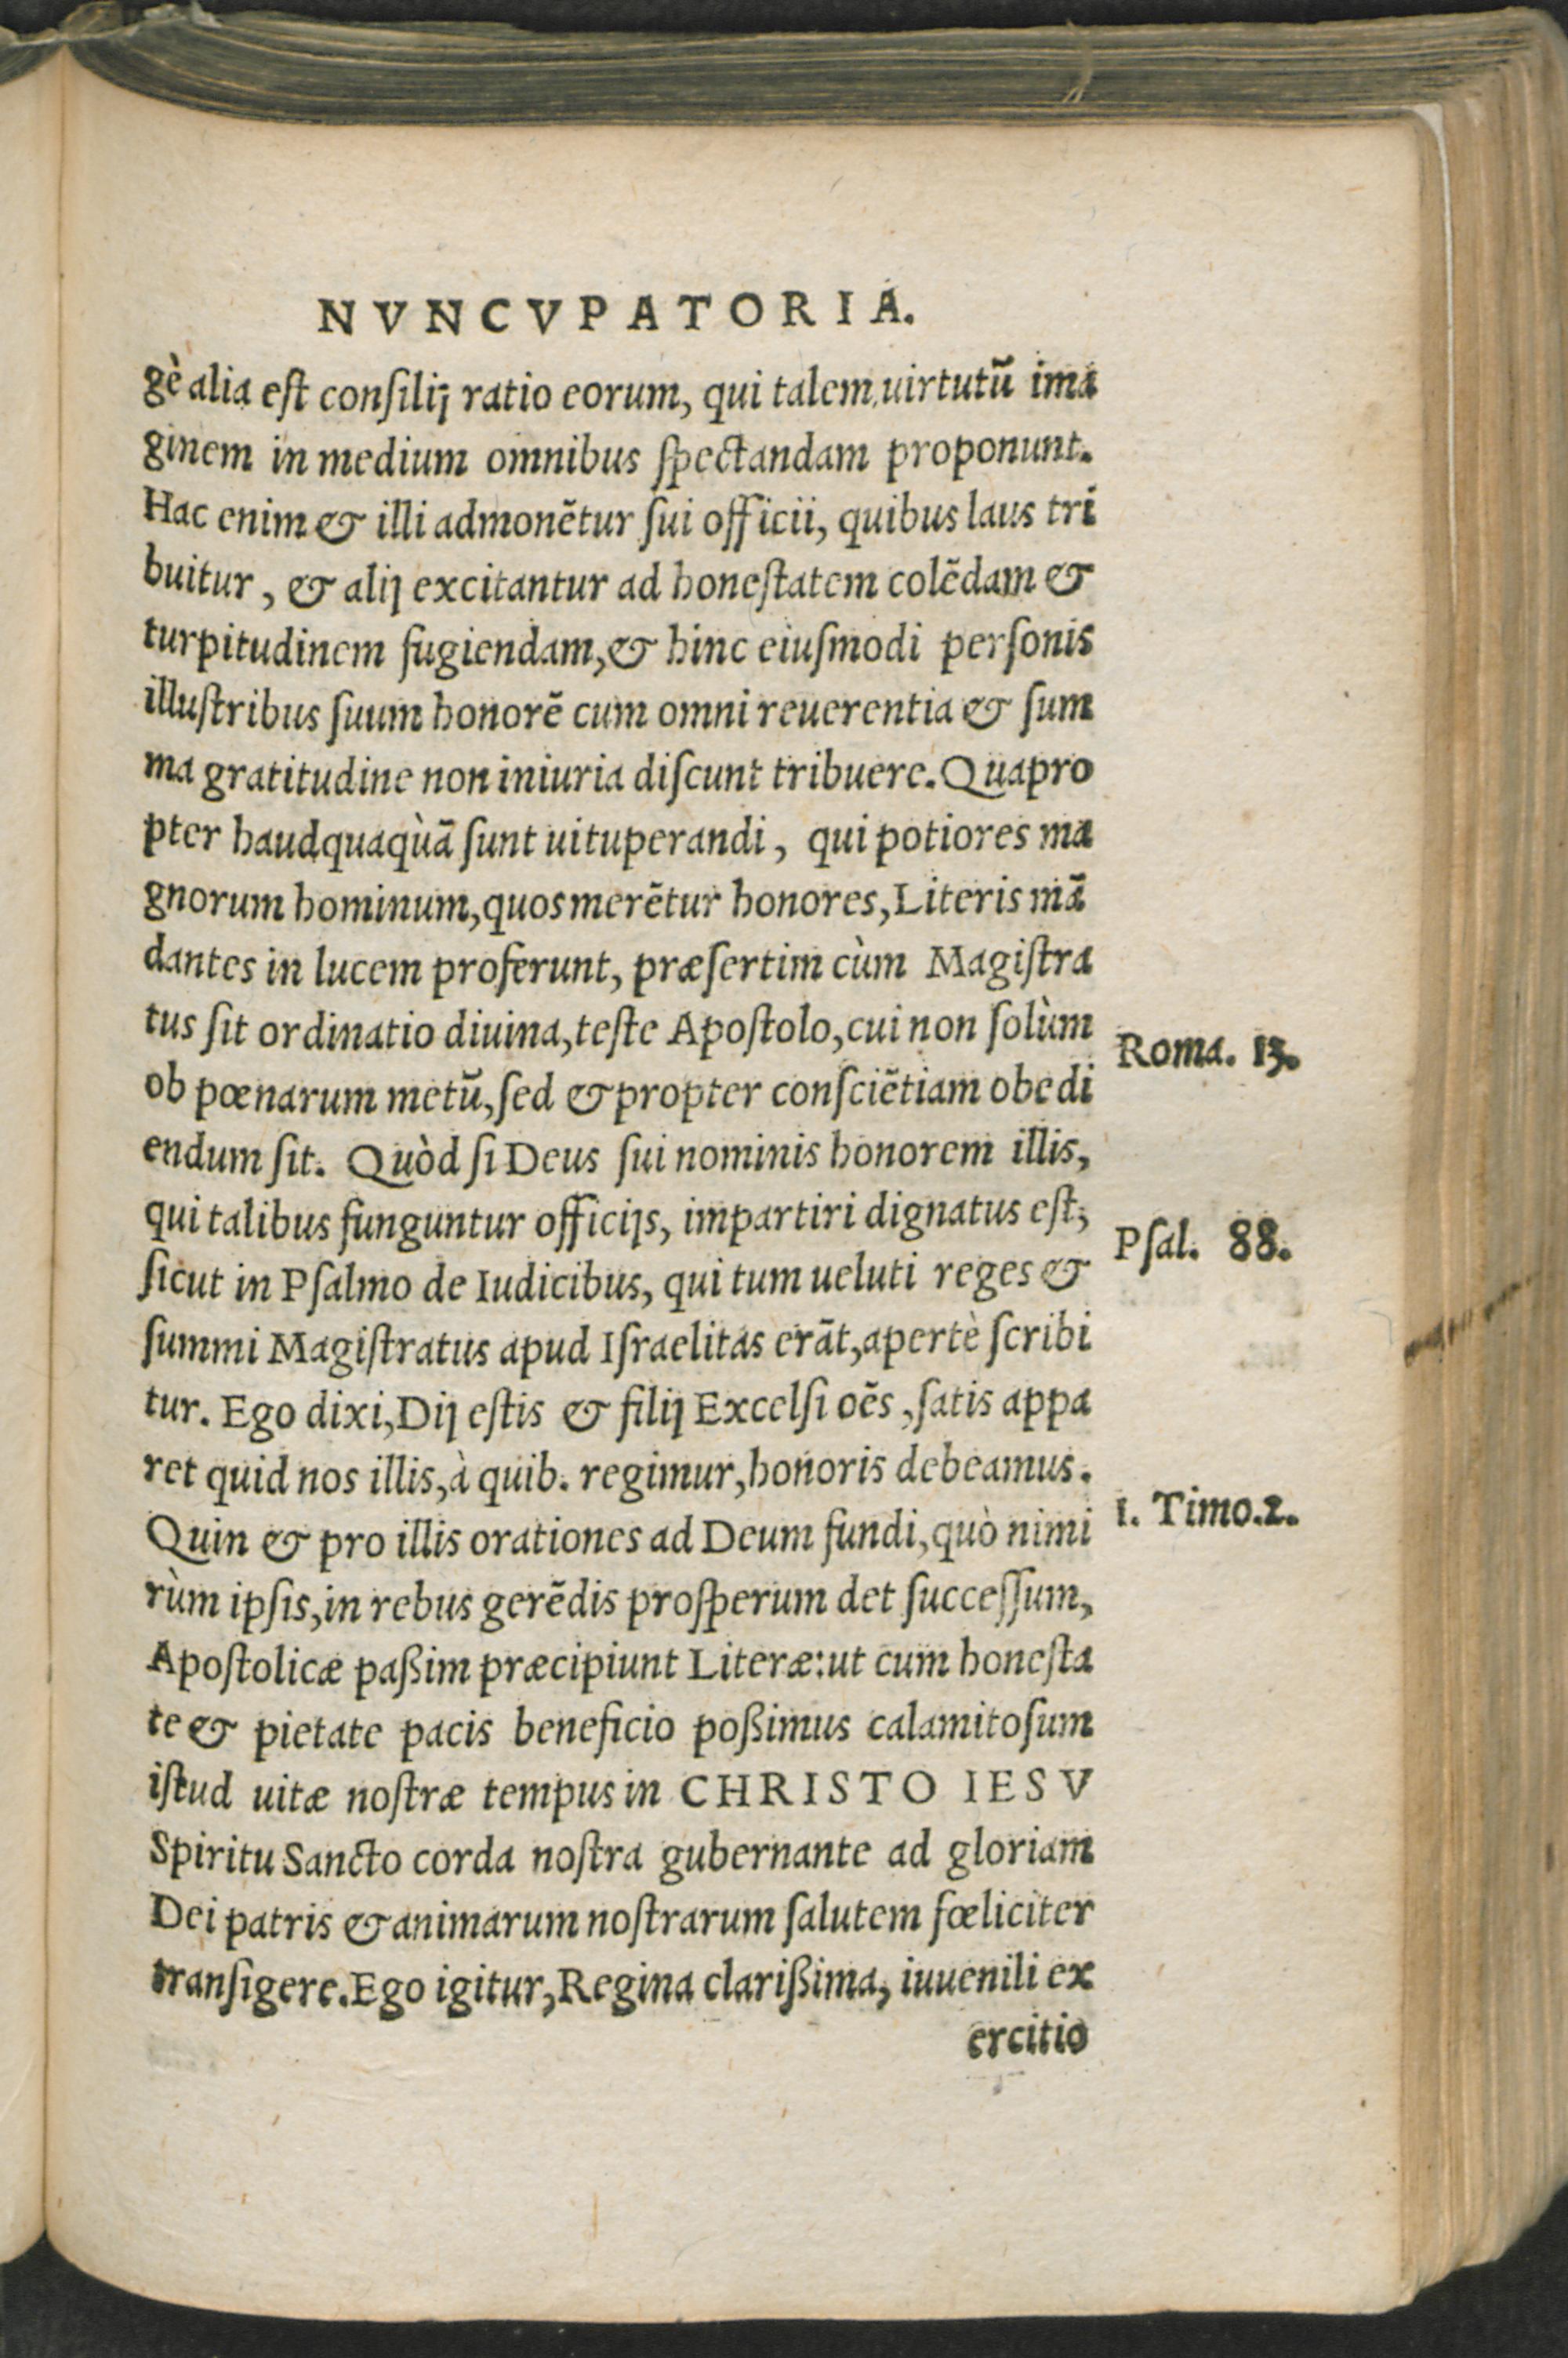 NVNCVPATORIA.
gè alia est consilij ratio eorum, qui talem uirtutũ ima
ginem in medium omnibus spectandam proponunt.
Hac enim & illi admonẽtur sui officii, quibus laus tri
buitur, & alij excitantur ad honestatem colẽdam &
turpitudinem fugiendam, & hinc eiusmodi personis
illustribus suum honorẽ cum omni reuerentia & sum
ma gratitudine non iniuria discunt tribuere. Quapro
pter haudquaqùã sunt uituperandi, qui potiores ma
gnorum hominum, quos merẽtur honores, Literis mã
dantes in lucem proferunt, præsertim cùm Magistra
tus sit ordinatio diuina, teste Apostolo, cui non solùm
Roma. 13.
ob pœnarum metũ, sed & propter consciẽtiam obedi
endum sit. Quòd si Deus sui nominis honorem illis,
qui talibus funguntur officijs, impartiri dignatus est,
Psal. 88.
sicut in Psalmo de Iudicibus, qui tum ueluti reges &
summi Magistratus apud Israelitas erãt, apertè scribi
tur. Ego dixi, Dij estis & filij Excelsi oẽs, satis appa
ret quid nos illis, à quib. regimur, honoris debeamus.
Quin & pro illis orationes ad Deum fundi, quò nimi
1. Timo. 2.
rùm ipsis, in rebus gerẽdis prosperum det successum,
Apostolicæ paßim præcipiunt Literæ: ut cum honesta
te & pietate pacis beneficio poßimus calamitosum
istud uitæ nostræ tempus in CHRISTO IESV
Spiritu Sancto corda nostra gubernante ad gloriam
Dei patris & animarum nostrarum salutem fœliciter
transigere. Ego igitur, Regina clarißima, iuuenili ex
ercitio